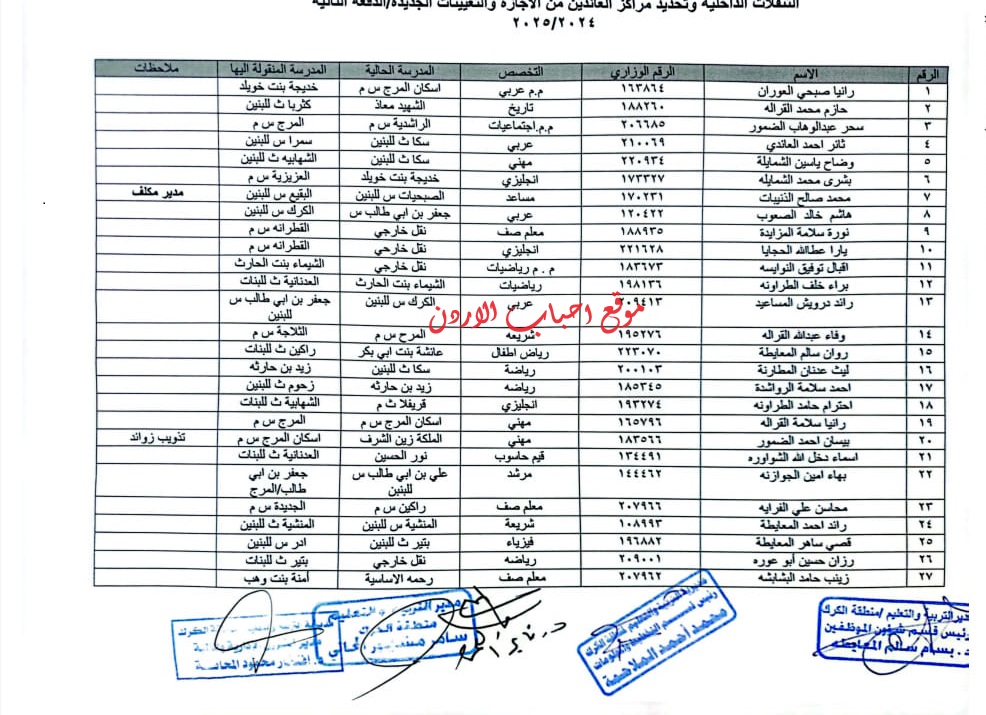 التنقلات الداخلية وتحديد مراكز العائدين من الاجازة والتعيينات الجديدة/الدفعة الثانية
٢٠٢٥/٢٠٢٤
الرقم الاسم الرقم الوزاري التخصص المدرسة الحالية المدرسة المنقولة اليها ملاحظات
١ رانيا صبحي العوران ١٦٣٨٦٤ م.م عربي اسكان المرج س م خديجة بنت خويلد
٢ حازم محمد القراله ١٨٨٢٦٠ تاريخ الشهيد معاذ كثربا ث للبنين
٣ سحر عبدالوهاب الضمور ٢٠٦٦٨٥ م.م.اجتماعيات الراشدية س م المرج س م
٤ ثائر احمد العاندي ٢١٠٠٦٩ عربي سكا ث للبنين سمرا س للبنين
٥ وضاح ياسين الشمايلة ٢٢٠٩٣٤ مهني سكا ث للبنين الشهابيه ث للبنين
٦ بشرى محمد الشمايله ١٧٣٣٢٧ انجليزي خديجة بنت خويلد العزيزية س م
٧ محمد صالح الذنيبات ١٧٠٢٣١ مساعد الصبحيات س للبنين البقيع س للبنين مدير مكلف
٨ هاشم خالد الصعوب ١٢٠٤٢٢ عربي جعفر بن ابي طالب س الكرك س للبنين
٩ نورة سلامة المزايدة ١٨٨٩٣٥ معلم صف نقل خارجي القطرانه س م
١٠ يارا عطاالله الحجايا ٢٢١٦٢٨ انجليزي نقل خارجي القطرانه س م
١١ اقبال توفيق النوايسه ١٨٣٦٧٣ م . م رياضيات نقل خارجي الشيماء بنت الحارث
١٢ براء خلف الطراونه ١٩٨١٣٦ رياضيات الشيماء بنت الحارث العدنانية ث للبنات
١٣ رائد درويش المساعيد ٢٠٩٤١٣ عربي الكرك س للبنين جعفر بن ابي طالب س للبنين
موقع احباب الاردن
١٤ وفاء عبدالله القراله ١٩٥٢٧٦ شريعه المرج س م الثلاجة س م
١٥ روان سالم المعايطة ٢٢٣٠٧٠ رياض اطفال عائشة بنت ابي بكر راكين ث للبنات
١٦ ليث عدنان المطارنة ٢٠٠١٠٣ رياضة سكا ث للبنين زيد بن حارثه
١٧ احمد سلامة الرواشدة ١٨٥٣٤٥ رياضه زيد بن حارثه زحوم ث للبنين
١٨ احترام حامد الطراونه ١٩٣٢٧٤ انجليزي قريفلا ث م الشهابية ث للبنات
١٩ رانيا سلامة القراله ١٦٥٧٩٦ مهني اسكان المرج س م المرج س م
٢٠ بيسان احمد الضمور ١٨٣٥٦٦ مهني الملكة زين الشرف اسكان المرج س م تذويب زوائد
٢١ اسماء دخل الله الشواوره ١٣٤٤٩١ قيم حاسوب نور الحسين العدنانية ث للبنات
٢٢ بهاء امين الجوازنه ١٤٤٤٦٢ مرشد علي بن ابي طالب س للبنين جعفر بن ابي طالب/المرج
٢٣ محاسن علي الفرايه ٢٠٧٩٦٦ معلم صف راكين س م الجديدة س م
٢٤ رائد احمد المعايطة ١٠٨٩٩٣ شريعة المنشية س للبنين المنشية ث للبنين
٢٥ قصي ساهر المعايطة ١٩٦٨٨٢ فيزياء بتير ث للبنين ادر س للبنين
٢٦ رزان حسين أبو عوره ٢٠٩٠٠١ رياضه نقل خارجي بتير ث للبنات
٢٧ زينب حامد البشابشه ٢٠٧٩٦٢ معلم صف رحمه الاساسية آمنة بنت وهب
مدير التربية والتعليم/منطقة الكرك
رئيس قسم شؤون الموظفين
د. بسام سالم المعايطه
محمد احمد الملاحمة
مدير التربية والتعليم
منطقة الكرك